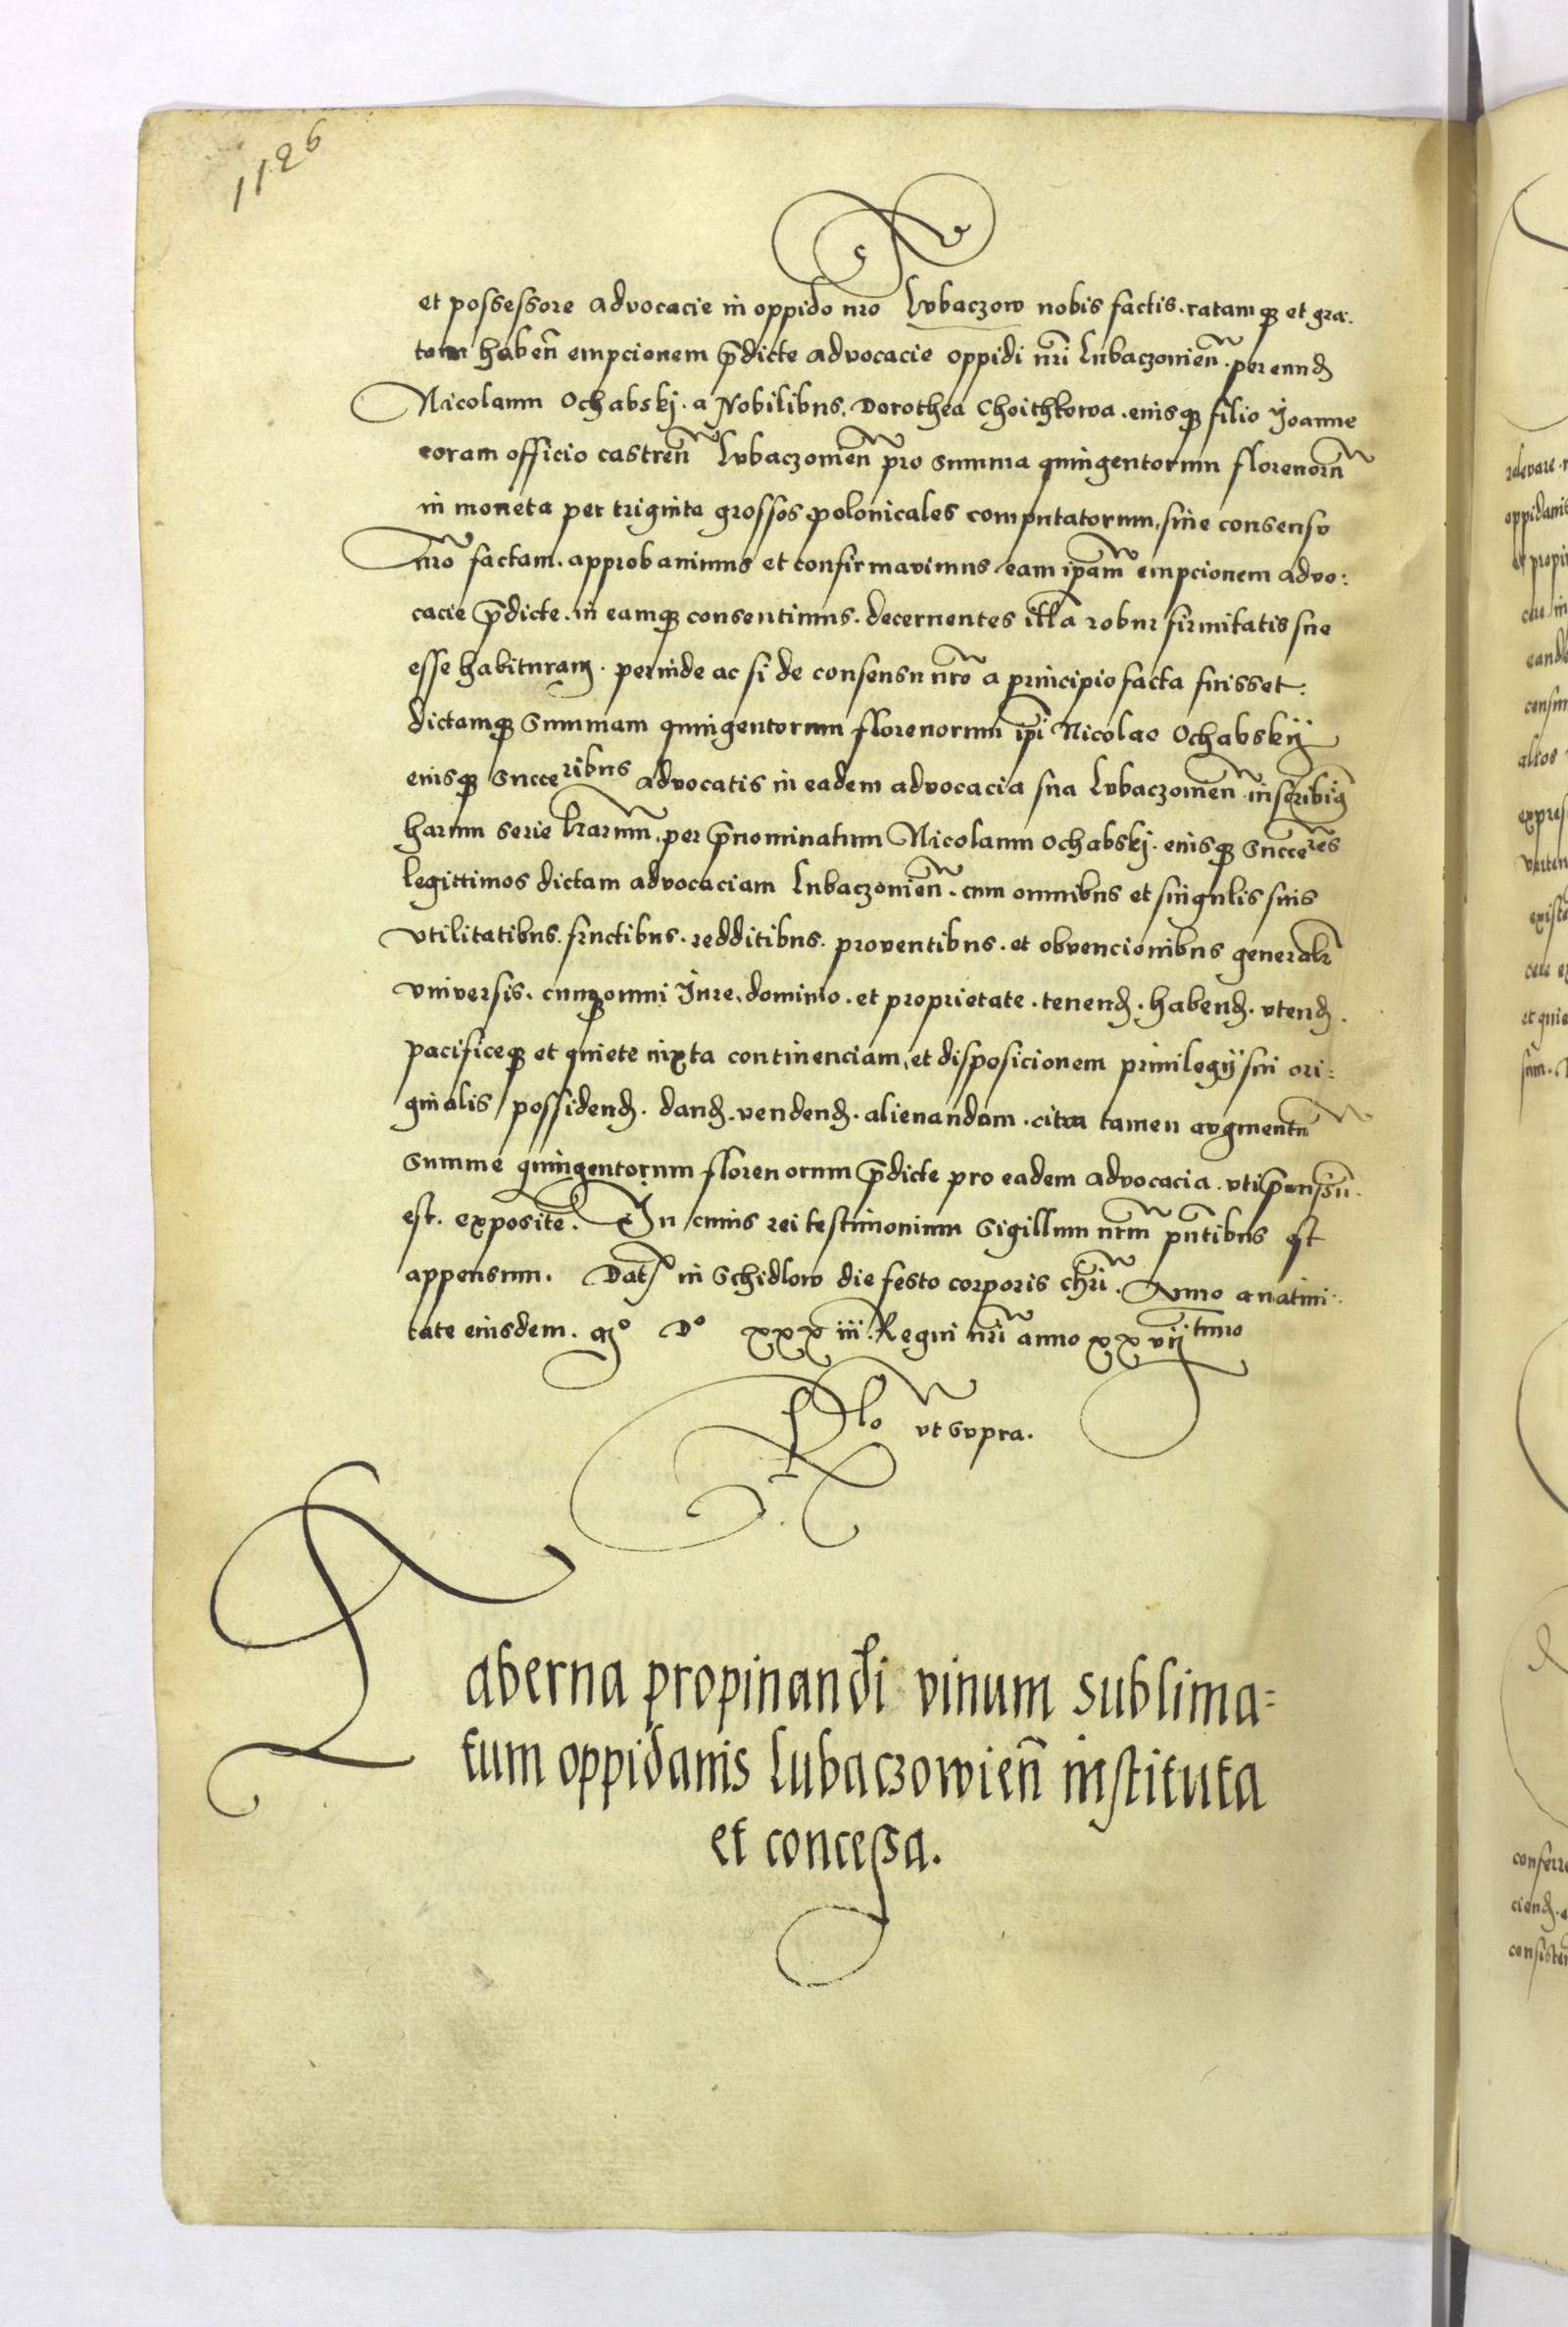 1126
et possessore advocacie in oppido nro Lvbaczow nobis factis. ratamq3 et gra:
tam haben̄ empcionem p̄dicte advocacie oppidi nr̄i Lubaczovien̄. per eund̄
Nicolaum Ochabskj. a Nobilibus. Dorothea Choithkowa. eiusq3 filio Joanne
coram officio castren̄ Lvbaczovien̄ pro summa quingentorum florenorū
in moneta per triginta grossos polonicales computatorum, sine consensv
nr̄o factam. approbavimus et confirmavimus eam ip̄am empcionem advo:
cacie p̄dicte. in eamq3 consentimus. decernentes illā robur firmitatis sue
esse habituram. perinde ac si de consensu nr̄o a principio facta fuisset:
dictamq3 summam quingentorum florenorum ip̄i Nicolao Ochabskij
eiusq3 succeribus advocatis in eadem advocacia sua Lvbaczovien̄ inscribim̄
harum serie lrarum̄. per p̄nominatum Nicolaum Ochabskj. eiusq3 succeres
legittimos dictam advocaciam Lubaczovien̄. cum omnibus et singulis suis
vtilitatibus. fructibus. redditibus. proventibus. et obvencionibus generalr̄
vniversis. cumq3 omni Jure. dominio. et proprietate. tenend̄. habend̄. vtend̄.
pacificeq3 et quiete iuxta continenciam, et disposicionem privilegij sui ori:
ginalis possidend̄. dand̄. vendend̄. alienandam. citra tamen avgmentū
summe quingentorum florenorum p̄dicte pro eadem advocacia. vti p̄missū.
est. exposite. In cuius rei testimonium sigillum nr̄m p̄ntibus est
appensum. Dat̄ in Schidlow die festo corporis chr̄i. Anno a nativi:
tate eiusdem. Mo Do xxxiii. Regni nr̄i anno xxvijtmo
Rlo vt svpra.
Taberna propinandi vinum sublima=
tum oppidanis lubaczowien̄ instituta
et concessa.